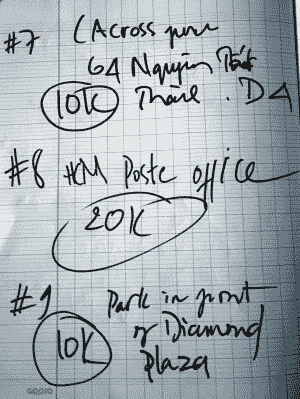 #7 (Across from
64 Nguyễn Tất
10K Thành . D4
#8 HCM Poste office
20K
#9 Park in front
of Diamond
10K plaza